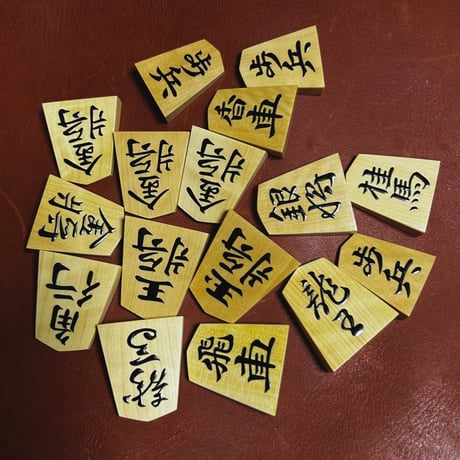 歩兵
歩兵
香車
金将
金将
金将
銀将
桂馬
金将
王将
玉将
歩兵
角行
龍王
飛車